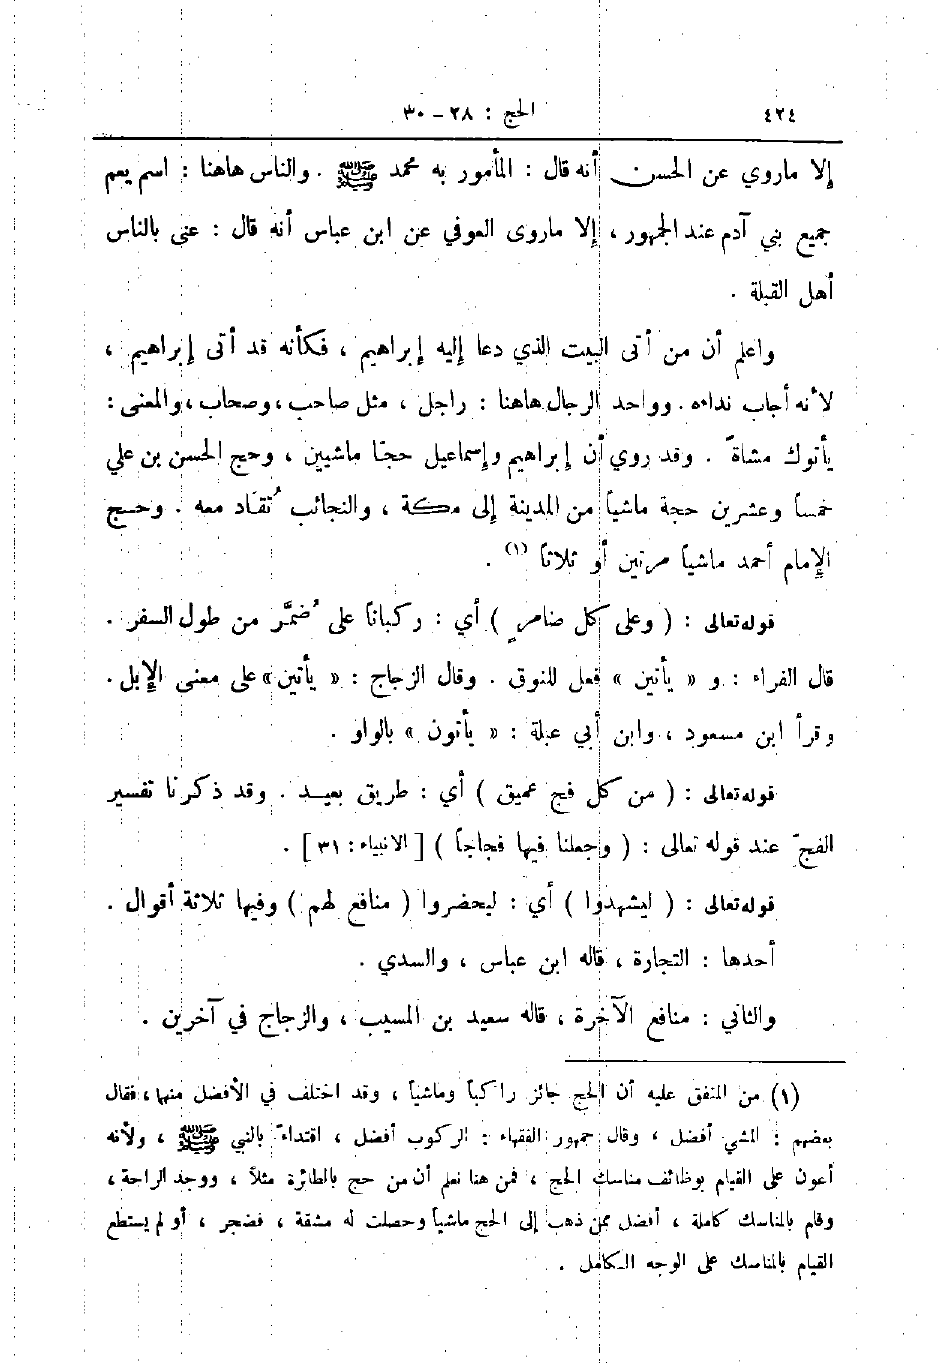 ٤٢٤ الحج : ٢٨ - ٣٠
إلا ماروي عن الحسن أنه قال : المأمور به محمد ﷺ . والناس هاهنا : اسم يعم
جميع بني آدم عند الجمهور ، إلا ماروى العوفي عن ابن عباس أنه قال : عنى بالناس
أهل القبلة .
واعلم أن من أتى البيت الذي دعا إليه إبراهيم ، فكأنه قد أتى إبراهيم ،
لأنه أجاب نداءه . وواحد الرجال هاهنا : راجل ، مثل صاحب ، وصحاب ، والمعنى :
يأتوك مشاةً . وقد روي أن إبراهيم وإسماعيل حجّا ماشيين ، وحج الحسن بن علي
خمساً وعشرين حجة ماشياً من المدينة إلى مكة ، والنجائب تُقاد معه . وحج
الإمام أحمد ماشياً مرتين أو ثلاثاً (١) .
قوله تعالى : ( وعلى كل ضامرٍ ) أي : ركباناً على ضُمَّر من طول السفر .
قال الفراء : و « يأتين » فعل للنوق . وقال الزجاج : « يأتين » على معنى الإبل .
وقرأ ابن مسعود ، وابن أبي عبلة : « يأتون » بالواو .
قوله تعالى : ( من كل فج عميق ) أي : طريق بعيد . وقد ذكرنا تفسير
الفجّ عند قوله تعالى : ( وجعلنا فيها فجاجاً ) [ الانبياء : ٣١ ] .
قوله تعالى : ( ليشهدوا ) أي : ليحضروا ( منافع لهم ) وفيها ثلاثة أقوال .
أحدها : التجارة ، قاله ابن عباس ، والسدي .
والثاني : منافع الآخرة ، قاله سعيد بن المسيب ، والزجاج في آخرين .
(١) من المتفق عليه أن الحج جائز راكباً وماشياً ، وقد اختلف في الأفضل منها ، فقال
بعضهم : المشي أفضل ، وقال جمهور الفقهاء : الركوب أفضل ، اقتداءً بالنبي ﷺ ، ولأنه
أعون على القيام بوظائف مناسك الحج ، فمن هنا نعلم أن من حج بالطائرة مثلاً ، ووجد الراحة ،
وقام بالمناسك كاملة ، أفضل ممن ذهب إلى الحج ماشياً وحصلت له مشقة ، فضجر ، أو لم يستطع
القيام بالمناسك على الوجه الكامل .